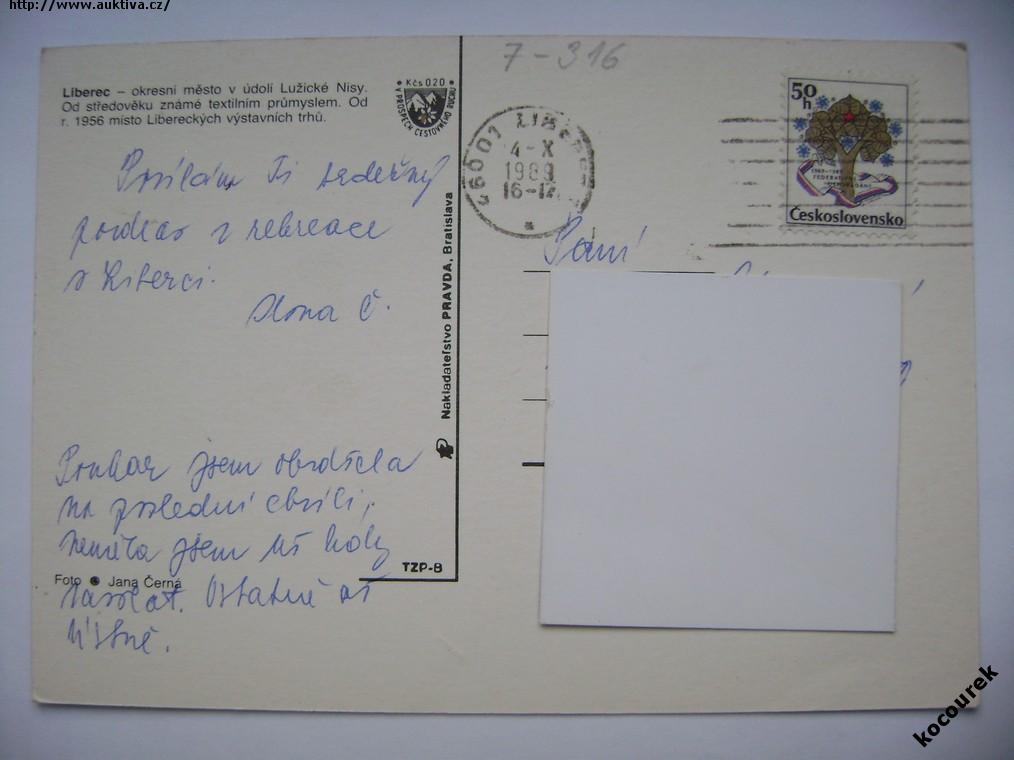 http://www.auktiva.cz/
7-316
Liberec – okresní město v údolí Lužické Nisy.
Od středověku známé textilním průmyslem. Od
r. 1956 místo Libereckých výstavních trhů.
Kčs 020
V PROSPĚCH CESTOVNÉHO RUCHU
460 01 LIBEREC
4-X
1989
50h
Československo
Posílám Ti srdečný
pozdrav z rekreace
v Liberci.
Ilona Č.
Paní
Nakladateľstvo PRAVDA, Bratislava
Poukaz jsem obdržela
na poslední chvíli,
neměla jsem už kdy
zavolat. Ostatně až
ústně.
TZP-B
Foto Jana Černá
kocourek